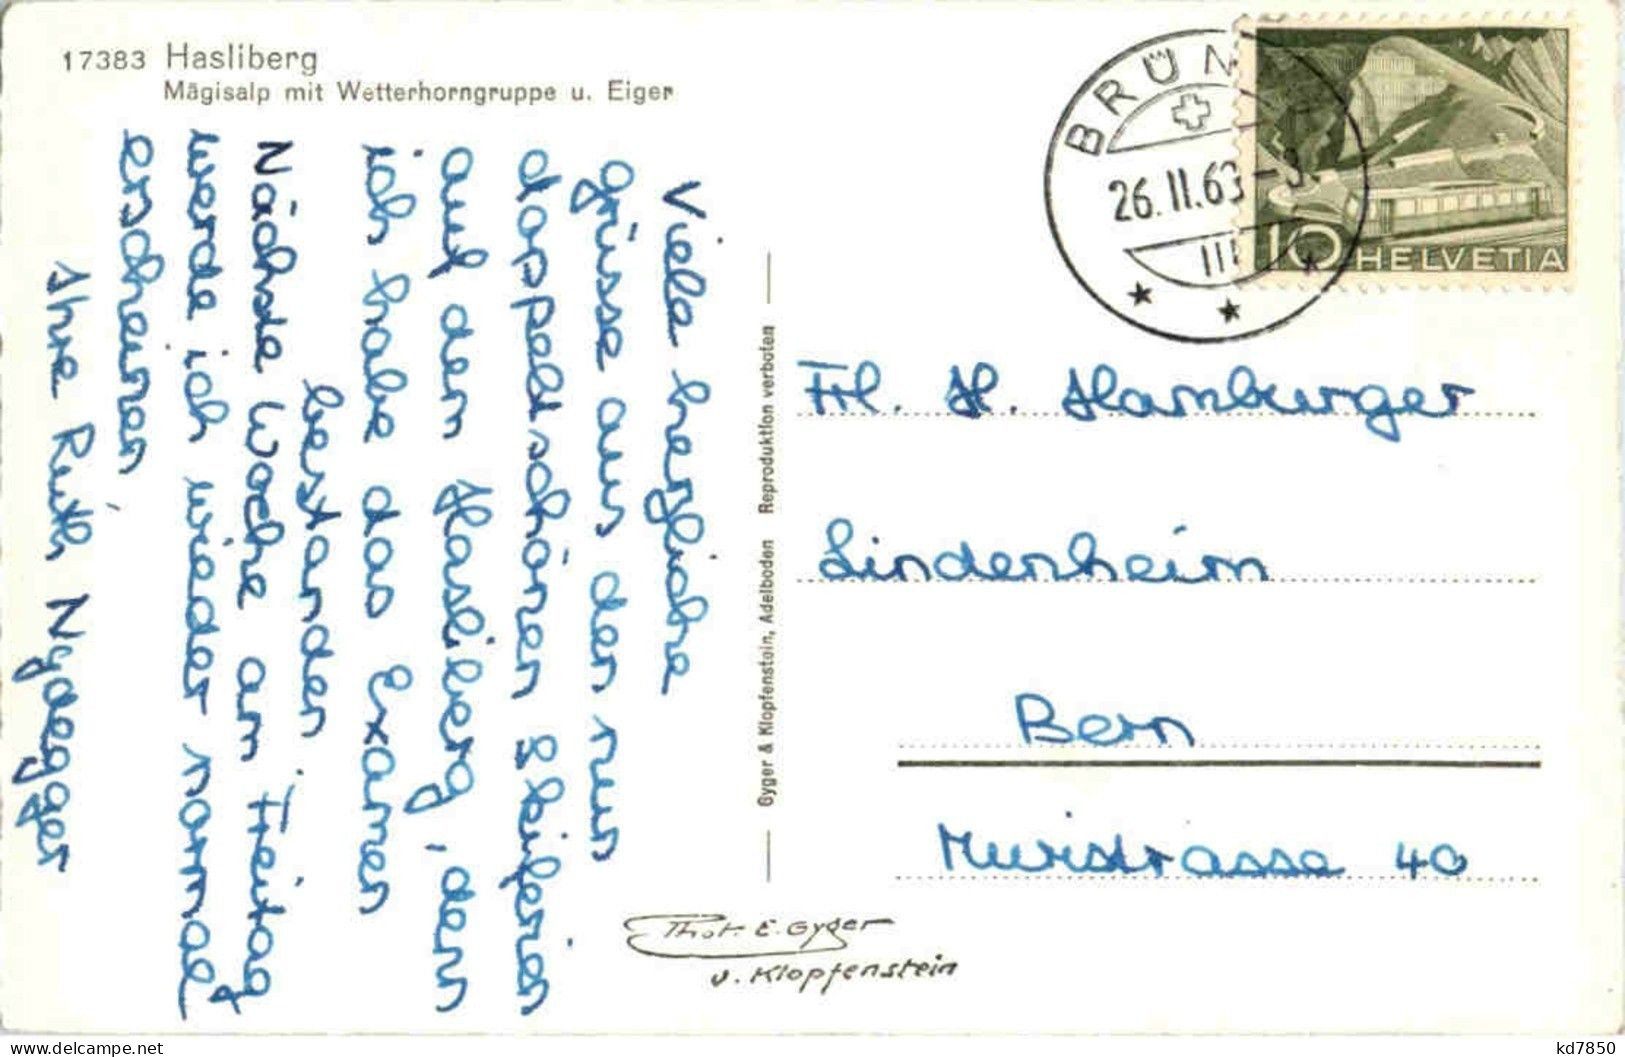 17383 Hasliberg
Mägisalp mit Wetterhorngruppe u. Eiger
Viele herzliche
grüsse aus den nun
doppeltschönen Skiferien
auf dem Hasliberg, denn
ich habe das Examen
bestanden.
Nächste Woche am Freitag
werde ich wieder normal
erscheinen,
Ihre Ruth Nydegger
Gyger & Klopfenstein, Adelboden Reproduktion verboten
BRÜN
26.II.63-9.
III
10 HELVETIA
Frl. H. Hamburger
Lindenheim
Bern
Muristrasse 40
Phot. E. Gyger
u. Klopfenstein
kd7850